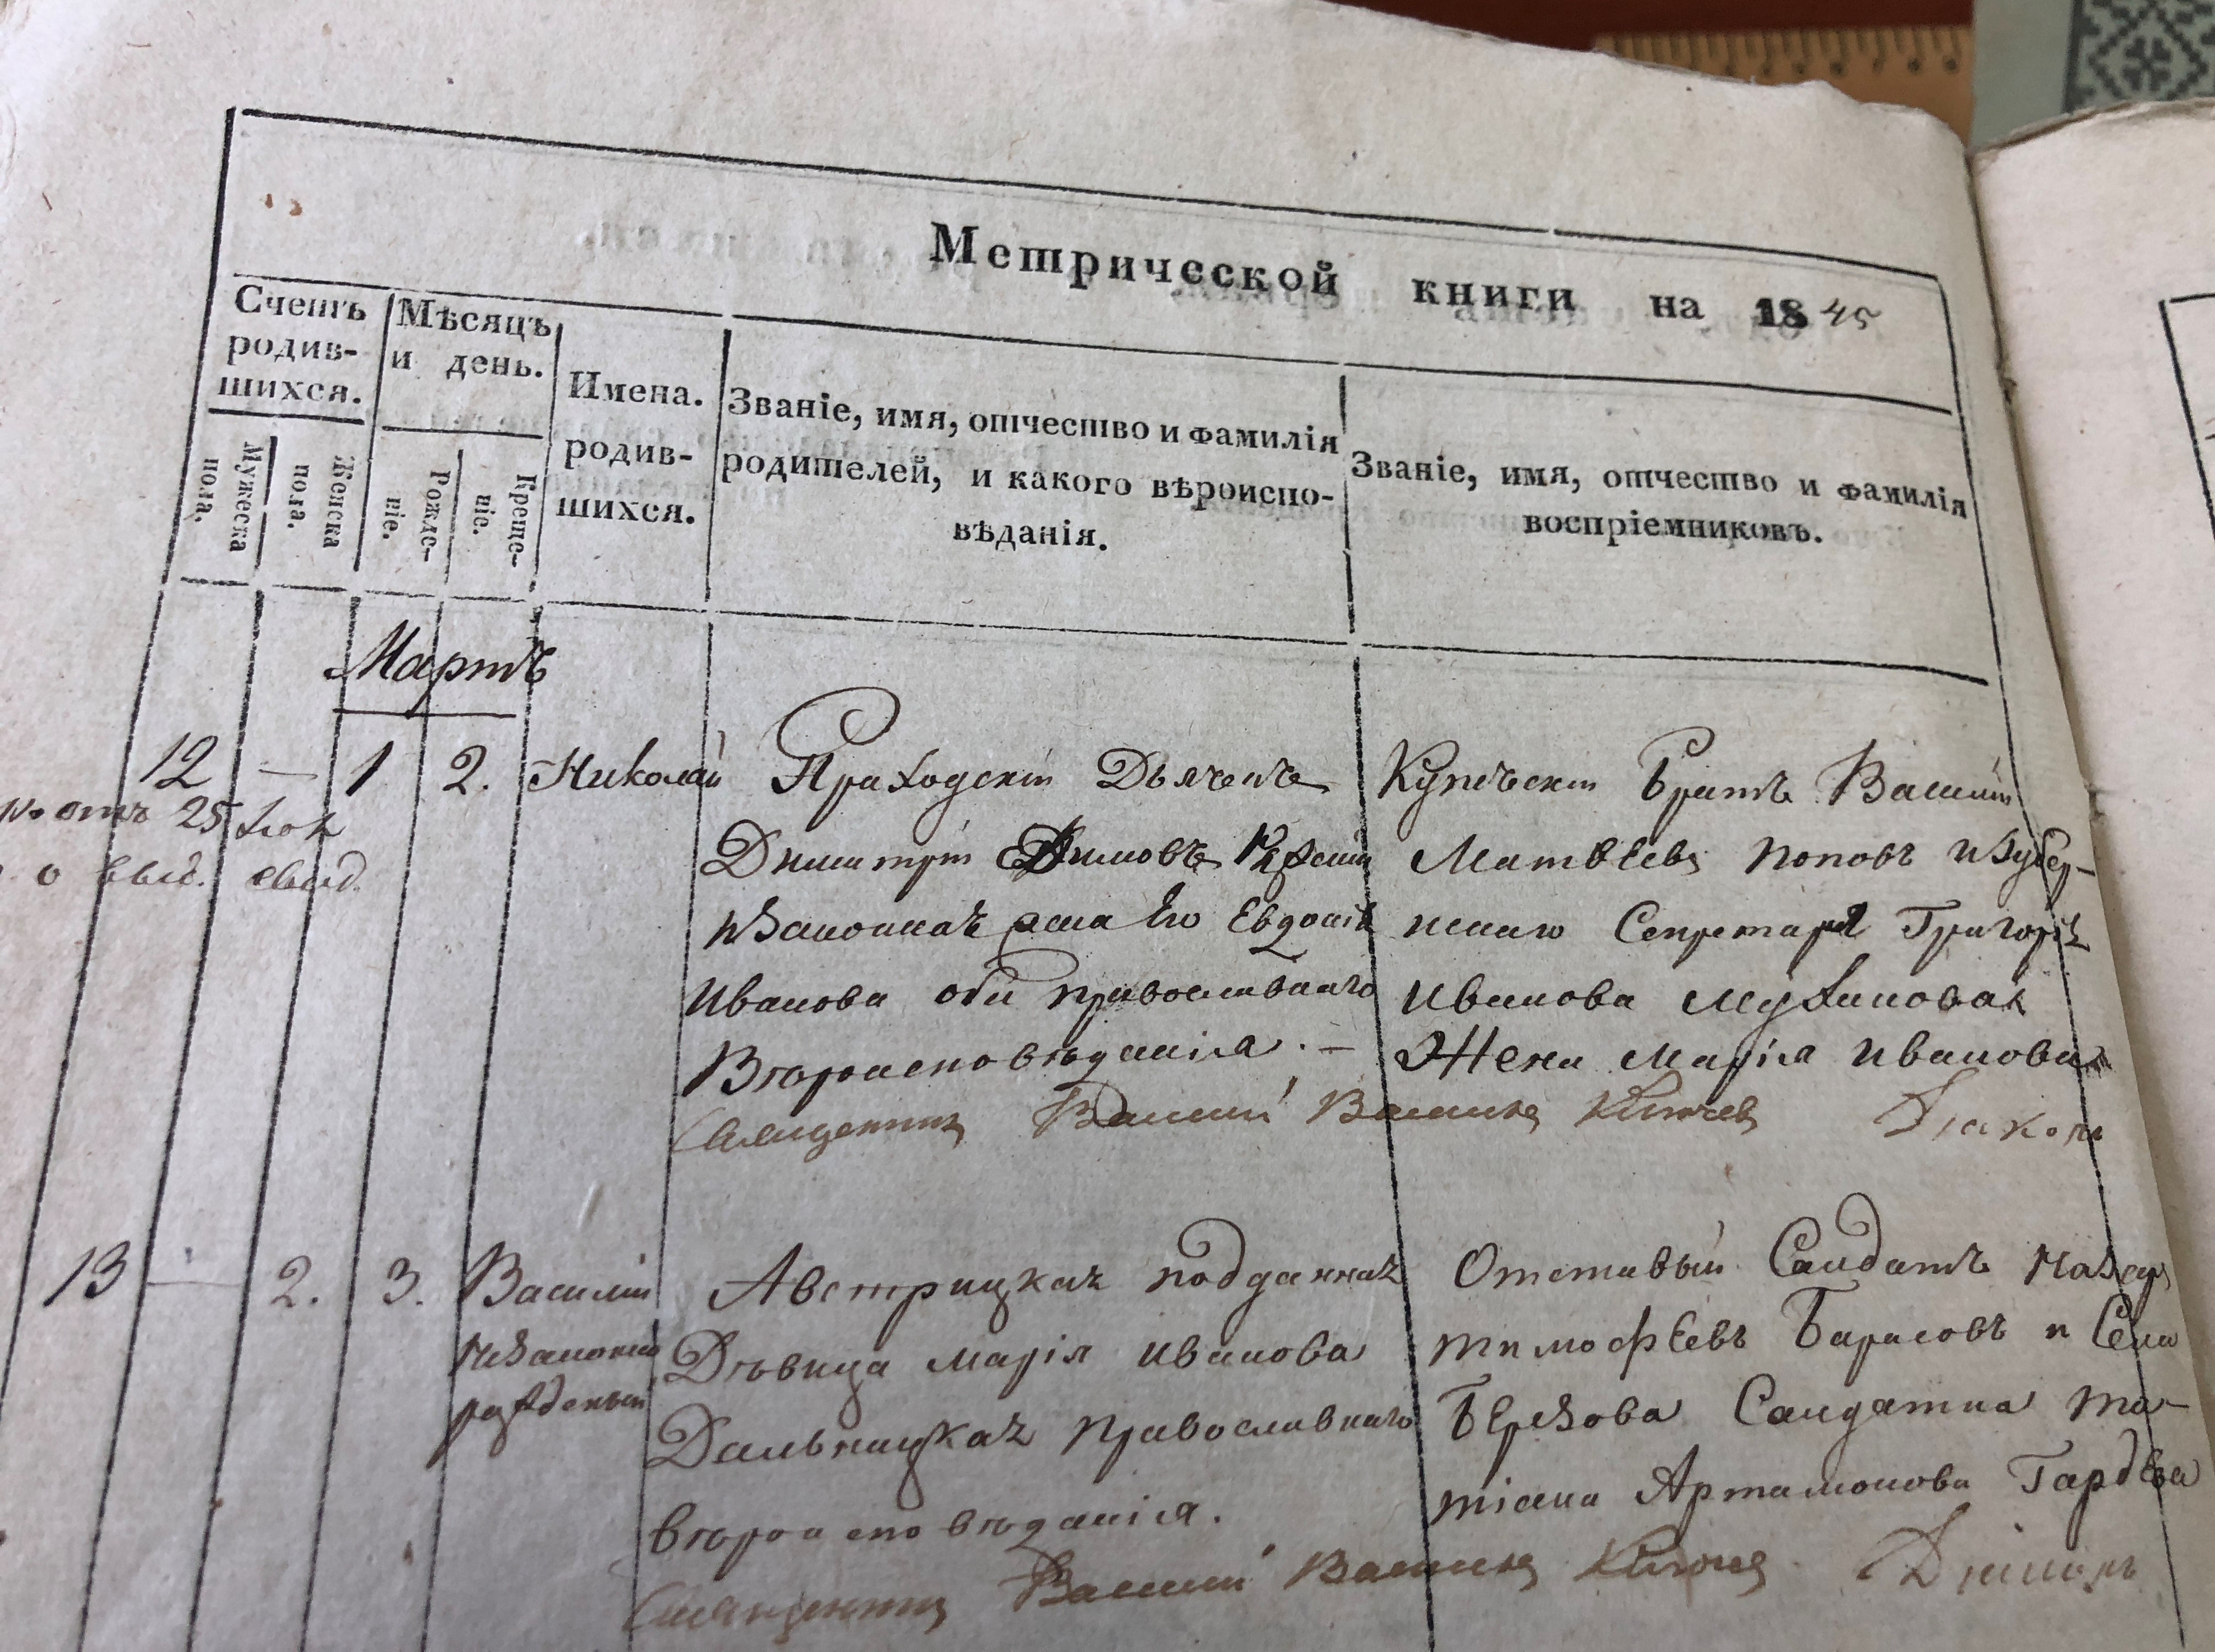 Метрической книги на 1845
Счетъ родив-шихся.
Мужеска пола.
Женска пола.
Мѣсяцъ и день.
Рожде-ніе.
Креще-ніе.
Имена. родив-шихся.
Званіе, имя, отчество и фамилія
родителей, и какого вѣроиспо-
вѣданія.
Званіе, имя, отчество и фамилія
воспріемниковъ.
Мартъ
12 — 1 2. Николай
отъ 25
о выд. свид.
Приходскій Дьячекъ
Димитрій
законная жена Его Евдокія
Иванова оба православнаго
Вѣроисповѣданія. —
Купѣческій Братъ Василій
Матвѣевъ Поповъ и Губер-
нскаго Секретаря Григорія
Иванова
Жена Марія Иванова
Священникъ Василій Васильевъ Діаконъ
13 — 2. 3. Василій
незаконно
рожденый
Австрицкая подданная
Дѣвица Марія Иванова
Дальницкая Православнаго
вѣроисповѣданія.
Отставный Салдатъ Назаръ
Тимофѣевъ Барасовъ и Села
Берѣзова Салдатка Та-
тіана Артамонова
Священникъ Василій Васильевъ Діаконъ